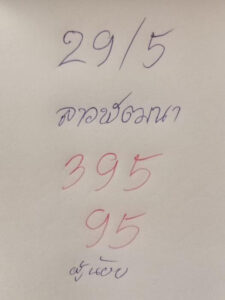 29/5
ลาวพัฒนา
395
95
ผู้น้อย